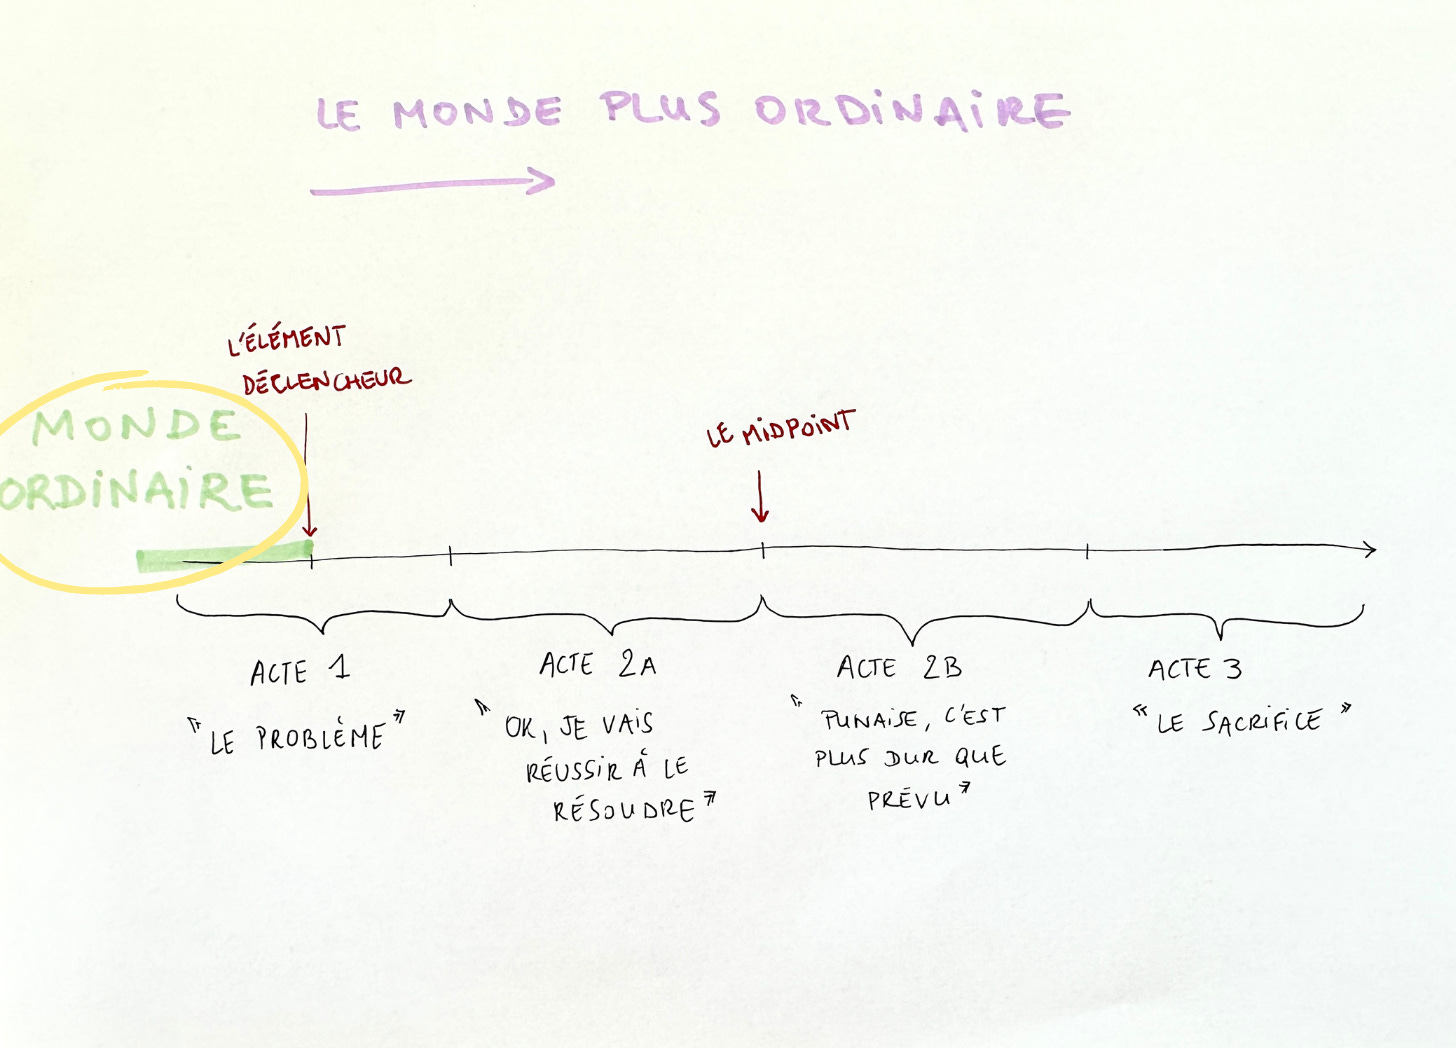 LE MONDE PLUS ORDINAIRE
L'ÉLÉMENT
DÉCLENCHEUR
MONDE
ORDINAIRE
LE MIDPOINT
ACTE 1
"LE PROBLÈME"
ACTE 2A
"OK, JE VAIS
RÉUSSIR À LE
RÉSOUDRE"
ACTE 2B
"PUNAISE, C'EST
PLUS DUR QUE
PRÉVU"
ACTE 3
"LE SACRIFICE"